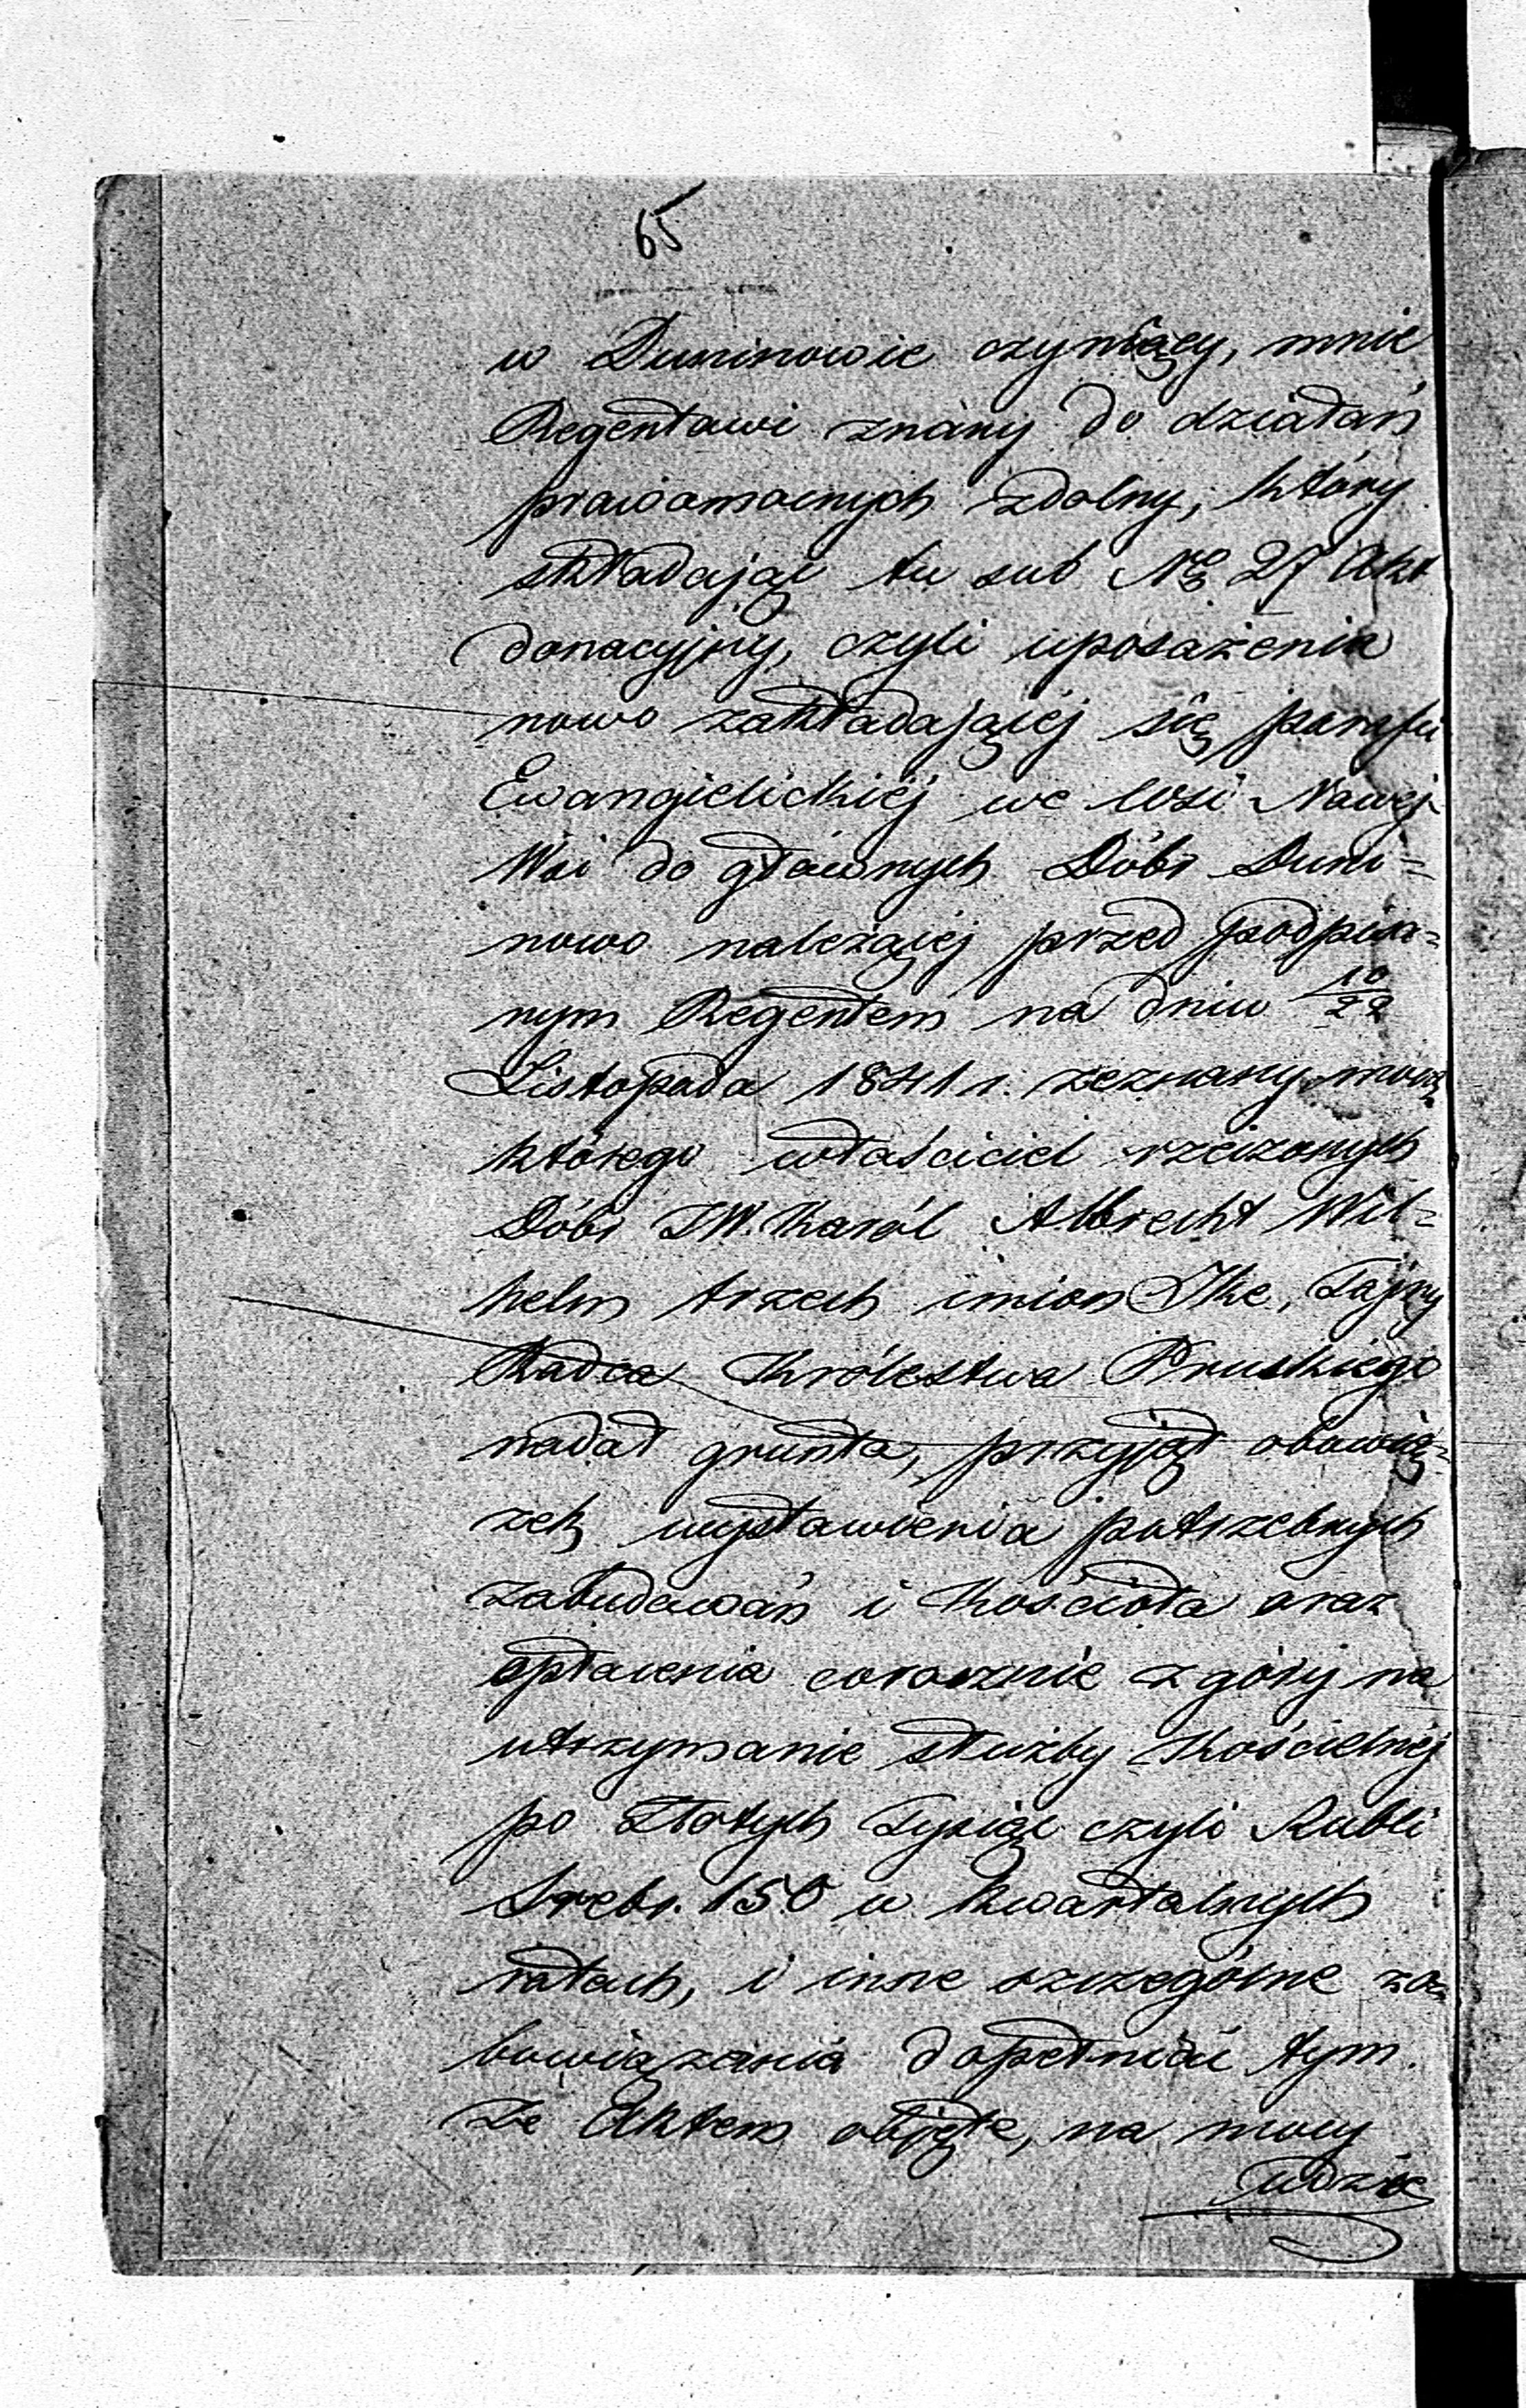 65
w Duninowie czyniący, mnie
Regentowi znany do działań
prawomocnych zdolny, który
składając tu sub Nro 27 Akt
donacyjny, czyli uposażenia
nowo zakładającej się parafii
Ewangielickiéj we Wsi Nowej
Wsi do głównych Dóbr Duni=
nowo należącej przed podpisa=
nym Regentem na dniu 10/22
Listopada 1841 r. zeznany mocą
którego właściciel rzeczonych
Dóbr JW. Karól Albrecht Wil=
helm trzech imion Ike, Tajny
Radca Królestwa Pruskiego
nadał grunta, przyjął obowią=
zek wystawienia potrzebnych
zabudowań i Kościoła oraz
opłacenia corocznie z góry na
utrzymanie służby Kościelnéj
po Złotych Tysiąc czyli Rubli
Srebr. 150 w Kwartalnych
ratach, i inne szczególne zo=
bowiązania dopełnić tym
że Aktem objęte, na mocy
udzie